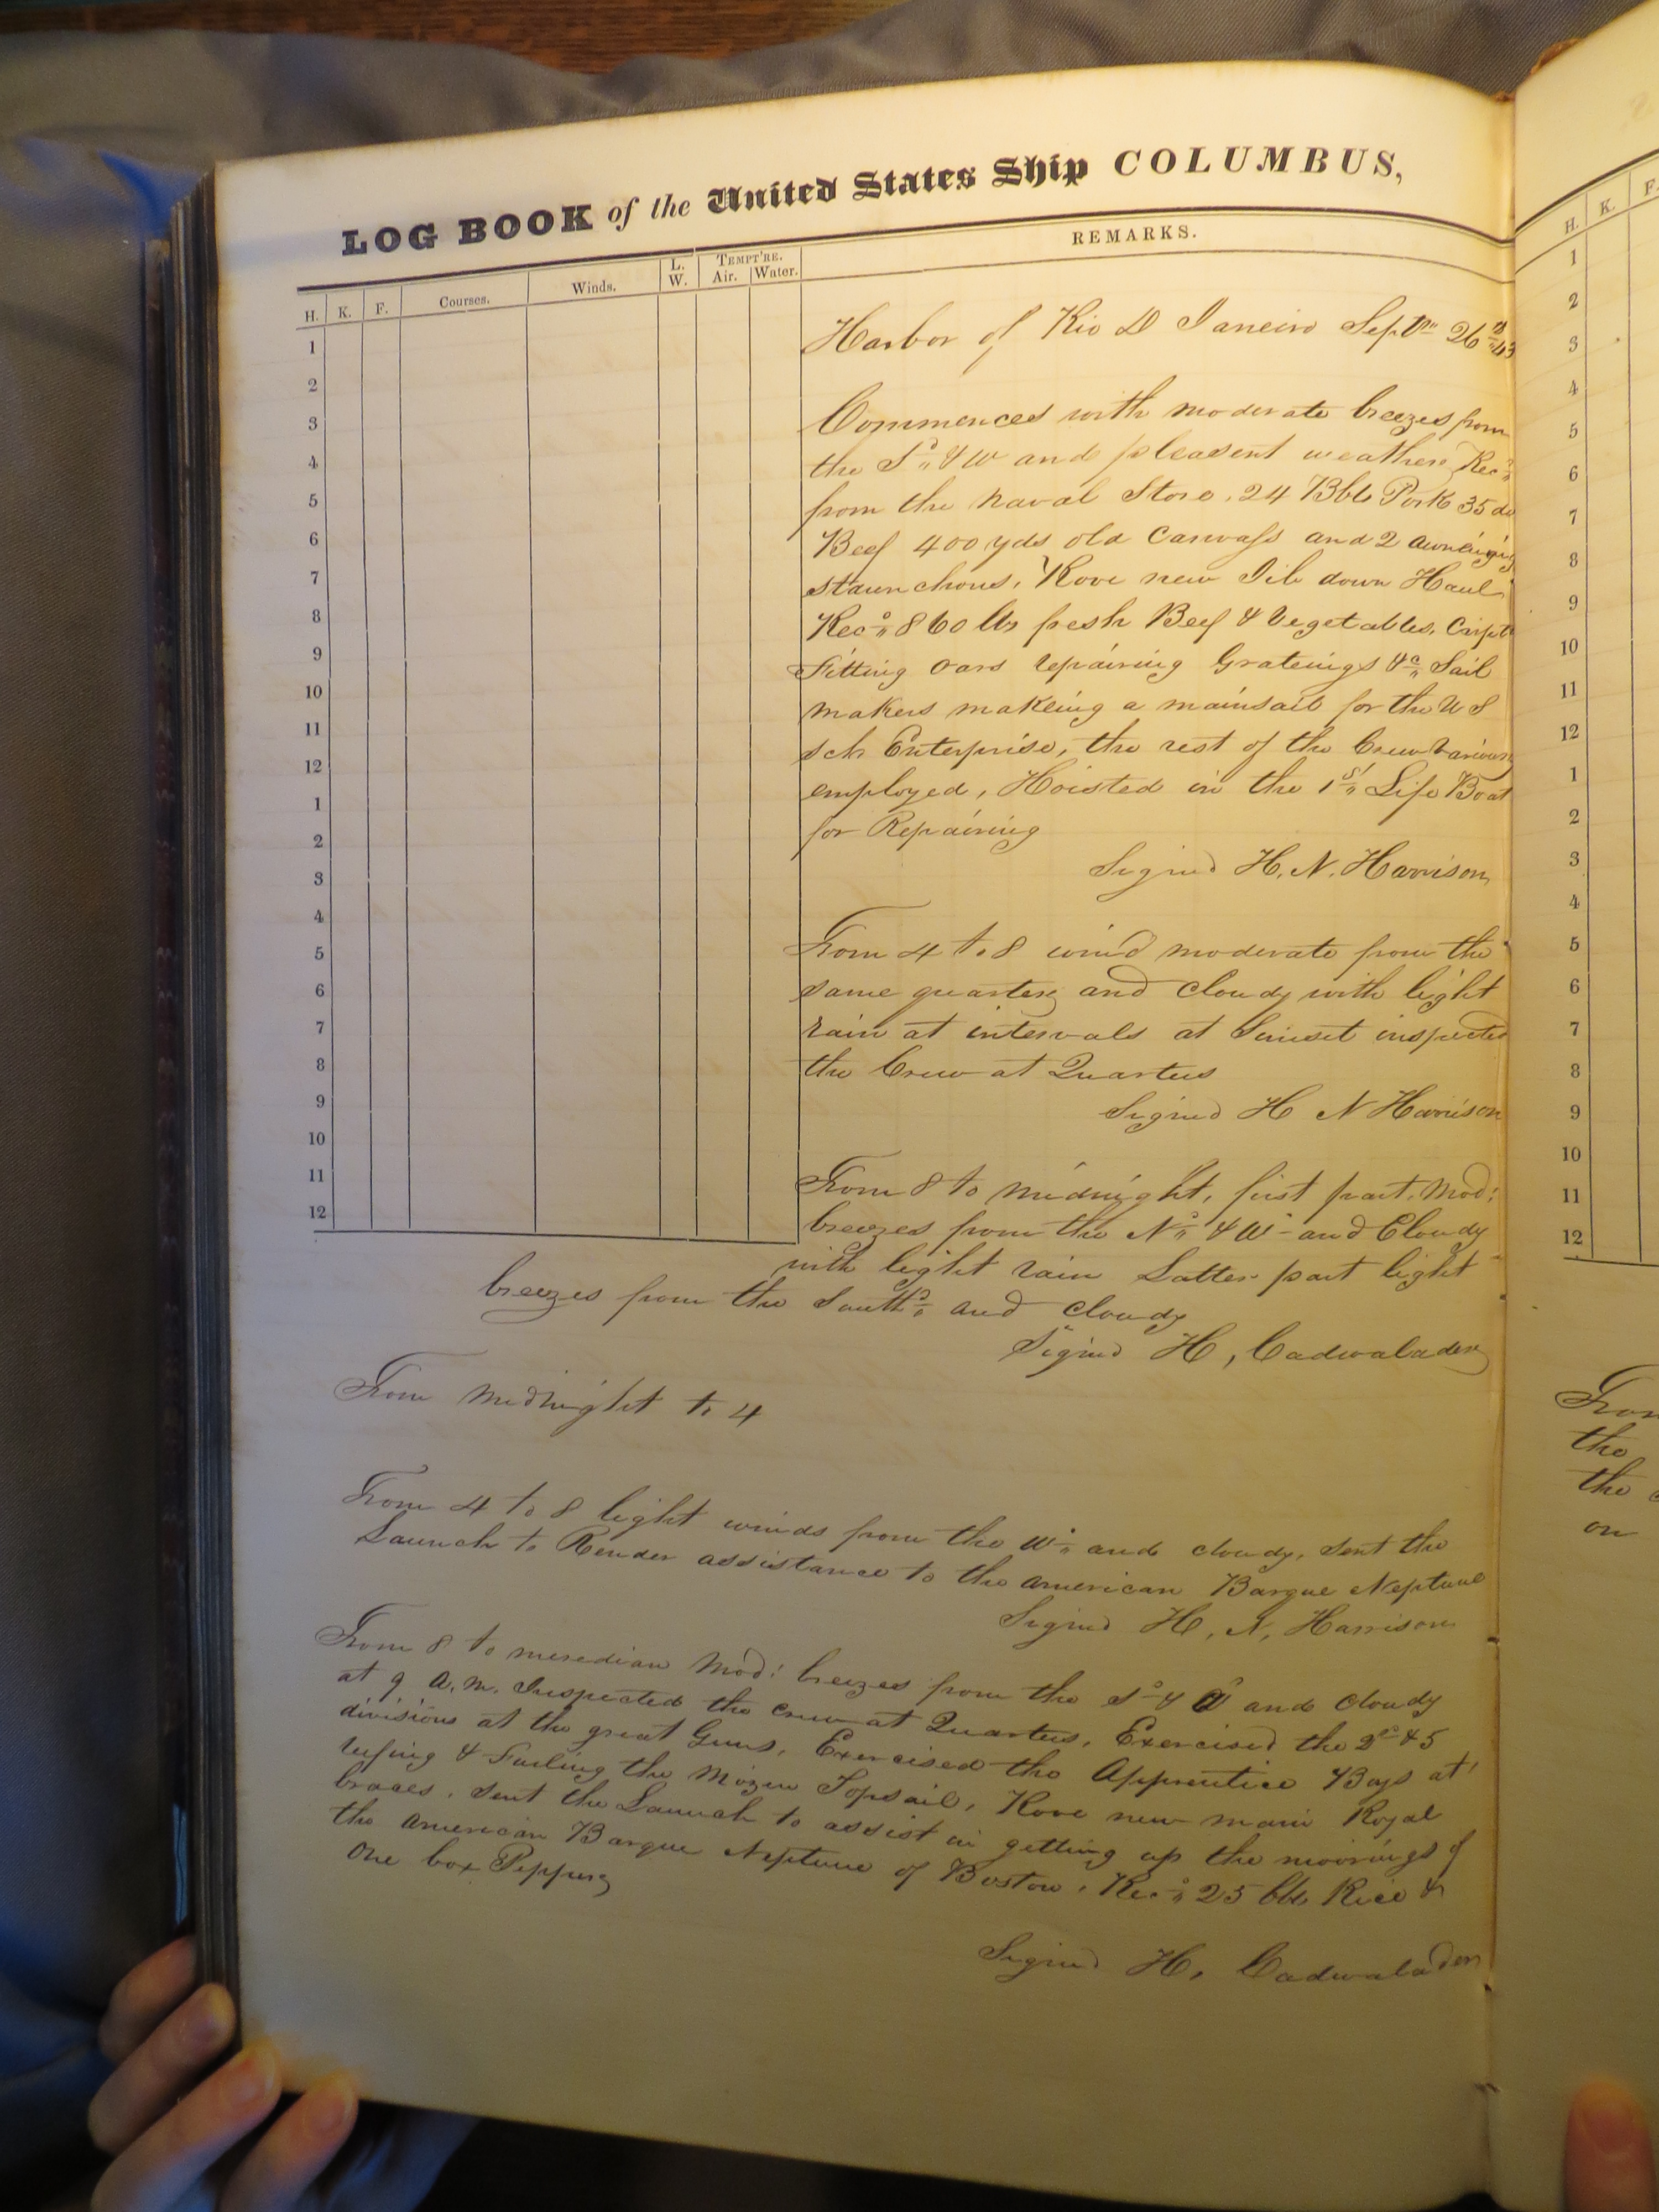 LOG BOOK of the United States Ship COLUMBUS,
H. K. F. Courses. Winds. L. W. TEMPT'RE. Air. Water. REMARKS.
1
2
3
4
5
6
7
8
9
10
11
12
1
2
3
4
5
6
7
8
9
10
11
12
Harbor of Rio D Janeiro Septr 26th 43
Commences with moderate breezes from
the Sd & W and pleasent weather, Recd
from the naval Store, 24 Bbls Pork 35 do
Beef 400 yds old Canvass and 2 awneing
staunchons, Rove new Jib down Haul
Recd 860 lbs fresh Beef & Vegetables, Carpts
Fitting oars repairing Grateings &c Sail
makers makeing a mainsail for the U S
sch Enterprise, the rest of the Crew Various
employed, Hoisted in the 1st Life Boat
for Repairing
Signed H. N. Harrison
From 4 to 8 wind moderate from the
same quarter, and cloudy with light
rain at intervals at Sunset inspected
the Crew at Quarters
Signed H N Harrison
From 8 to midnight, first part, Mod:
breezes from the Nd & Wd and Cloudy
with light rain Latter part light
breezes from the Southd and cloudy
Signed H, Cadwalader
From Midnight to 4
From 4 to 8 light winds from the Wd and cloudy, sent the
Launch to Render assistance to the american Barque Neptune
Signed H, N, Harrison
From 8 to meredian Mod: breezes from the Sd & and cloudy
at 9 a.m. Inspected the crew at Quarters, Exercised the 2nd & 5
divisions at the great Guns, Exercised the Apprentice Boys at
reefing & Furling the Mizen Topsail, Rove new main Royal
braces, sent the Launch to assist in getting up the moorings of
the American Barque Neptune of Boston, Recd 25 bbls Rice &
One box Pepper,
Signed H, Cadwalader
H. K. F.
1
2
3
4
5
6
7
8
9
10
11
12
1
2
3
4
5
6
7
8
9
10
11
12
the
the
on